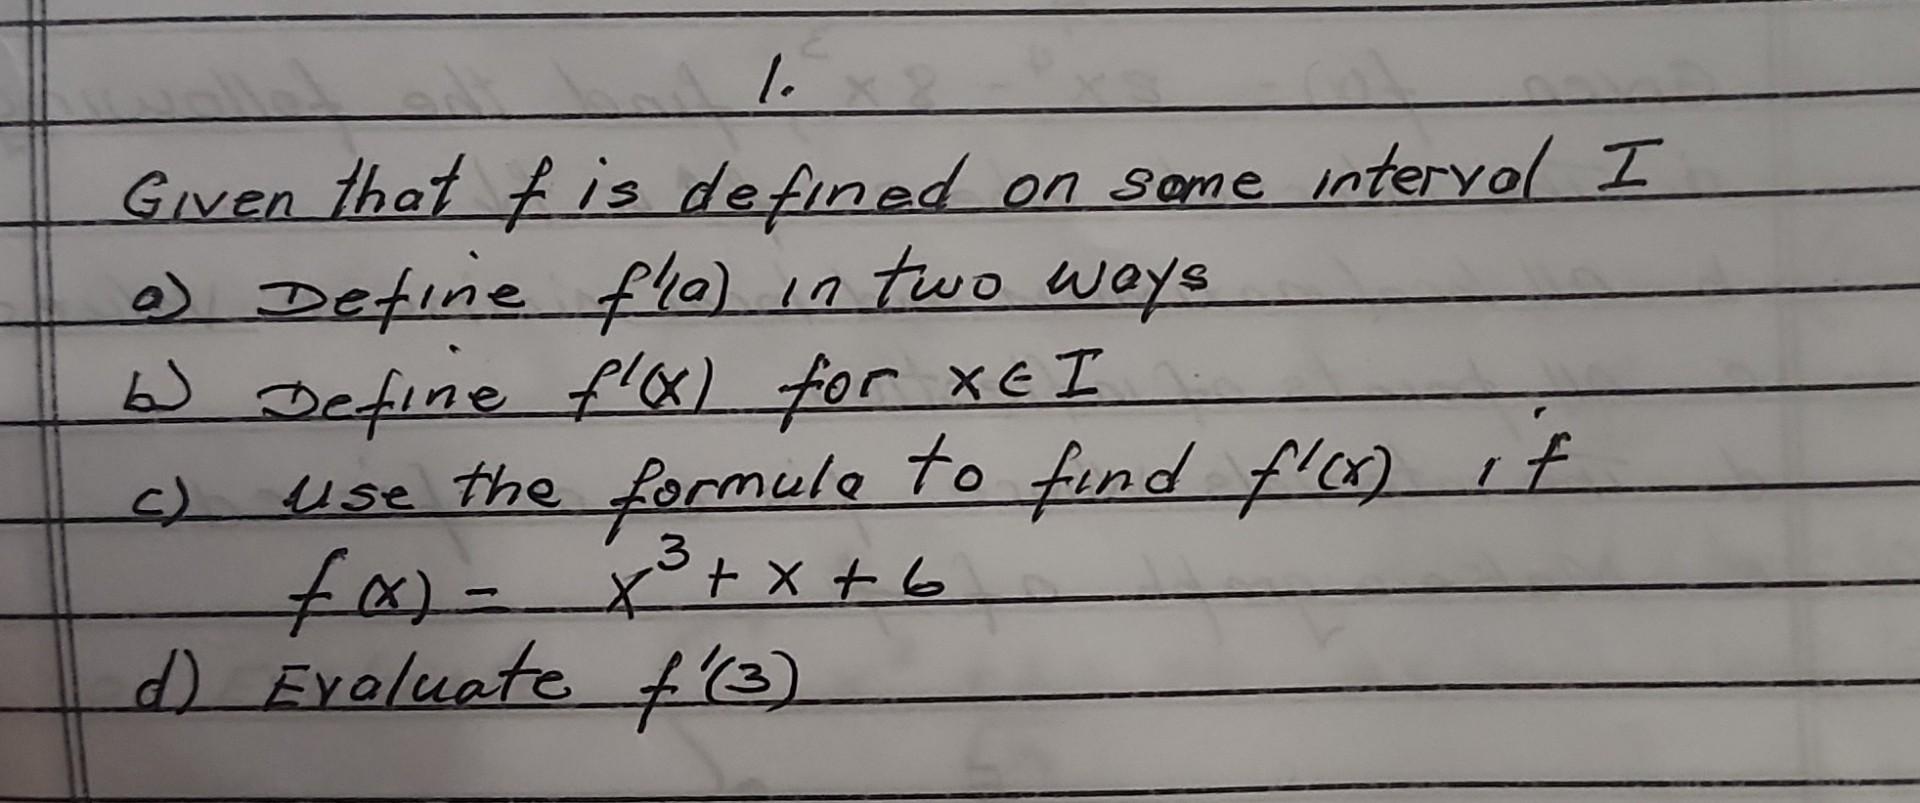 1.
Given that f is defined on some interval I
a) Define f'(a) in two ways
b) Define f'(x) for x ∈ I
c) Use the formula to find f'(x) if
f(x) = x³ + x + 6
d) Evaluate f'(3)